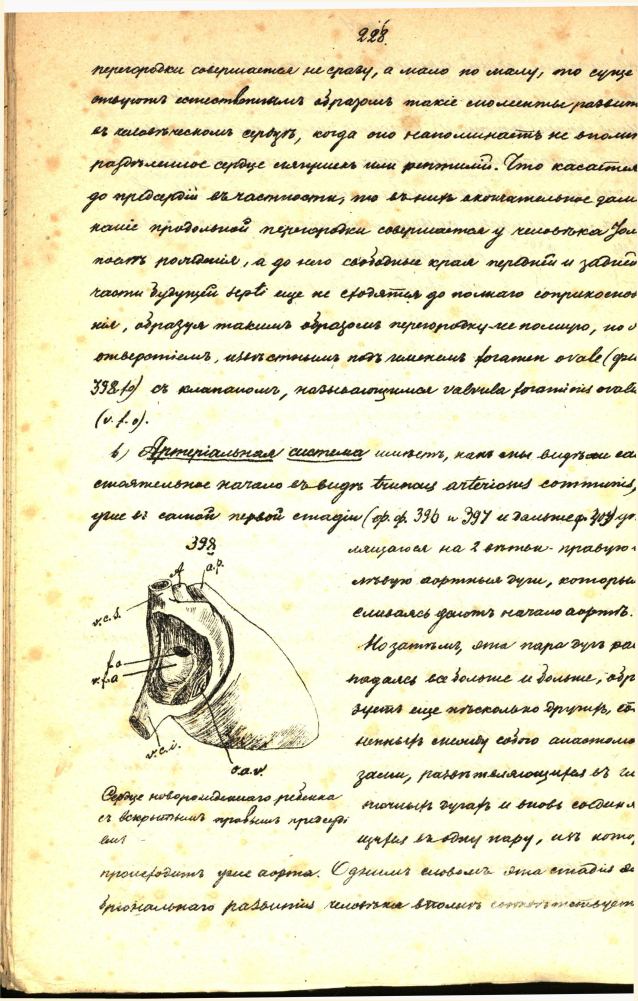 228.
перегородки совершается не сразу, а мало по малу, то суще
ствуютъ естественнымъ образомъ такіе моменты развит
въ человѣческомъ сердцѣ, когда оно напоминаетъ не вполн
раздѣленное сердце или рептилій. Что касается
до предсердій въ частности, то въ нихъ окончательное замы
каніе продольной перегородки совершается у человѣка
рожденія, а до него свободные края передней и задней
части будущей septi еще не сходятся до полнаго соприкоснов
нія, образуя такимъ образомъ перегородку не полную, но с
отверстіемъ, извѣстнымъ подъ именемъ foramen ovale (фиг
398 fo) съ клапаномъ, называющимся valvula foraminis ovalis
(v. f. o).
b) Артеріальная система имѣетъ, какъ мы видѣли са
стоятельное начало въ видѣ truncus arteriosus communis,
уже въ самой первой стадіи (ф.ф. 396 и 397 и дальше ф.
398
A
a.p.
v.c.s.
f.o
v.f.o
v.c.i.
o.a.v.
Сердце новорожденнаго ребенка
съ вскрытымъ правымъ предсерді
емъ
лящагося на 2 вѣтви - правую и
лѣвую аортныя дуги, которыя
сливаясь даютъ начало аортѣ.
Но затѣмъ, эта пара дугъ ра
падаясь все больше и больше, обр
зуетъ еще нѣсколько другихъ, со
ненныхъ между собою анастомо
зами, развѣтвляющихся въ
дугахъ и вновь соединя
щихся въ одну пару, изъ кото
происходитъ уже аорта. Однимъ словомъ эта стадія эм
бріональнаго развитія человѣка вполнѣ соотвѣтствуетъ